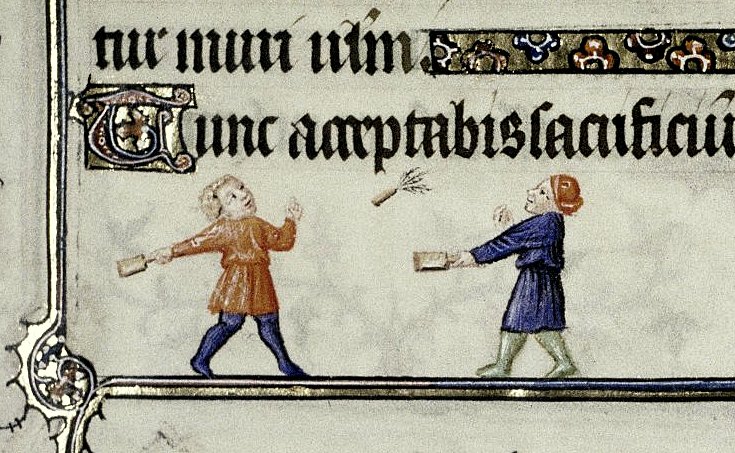 tur muri irl̄m.
Tunc acceptabis sacrificiū